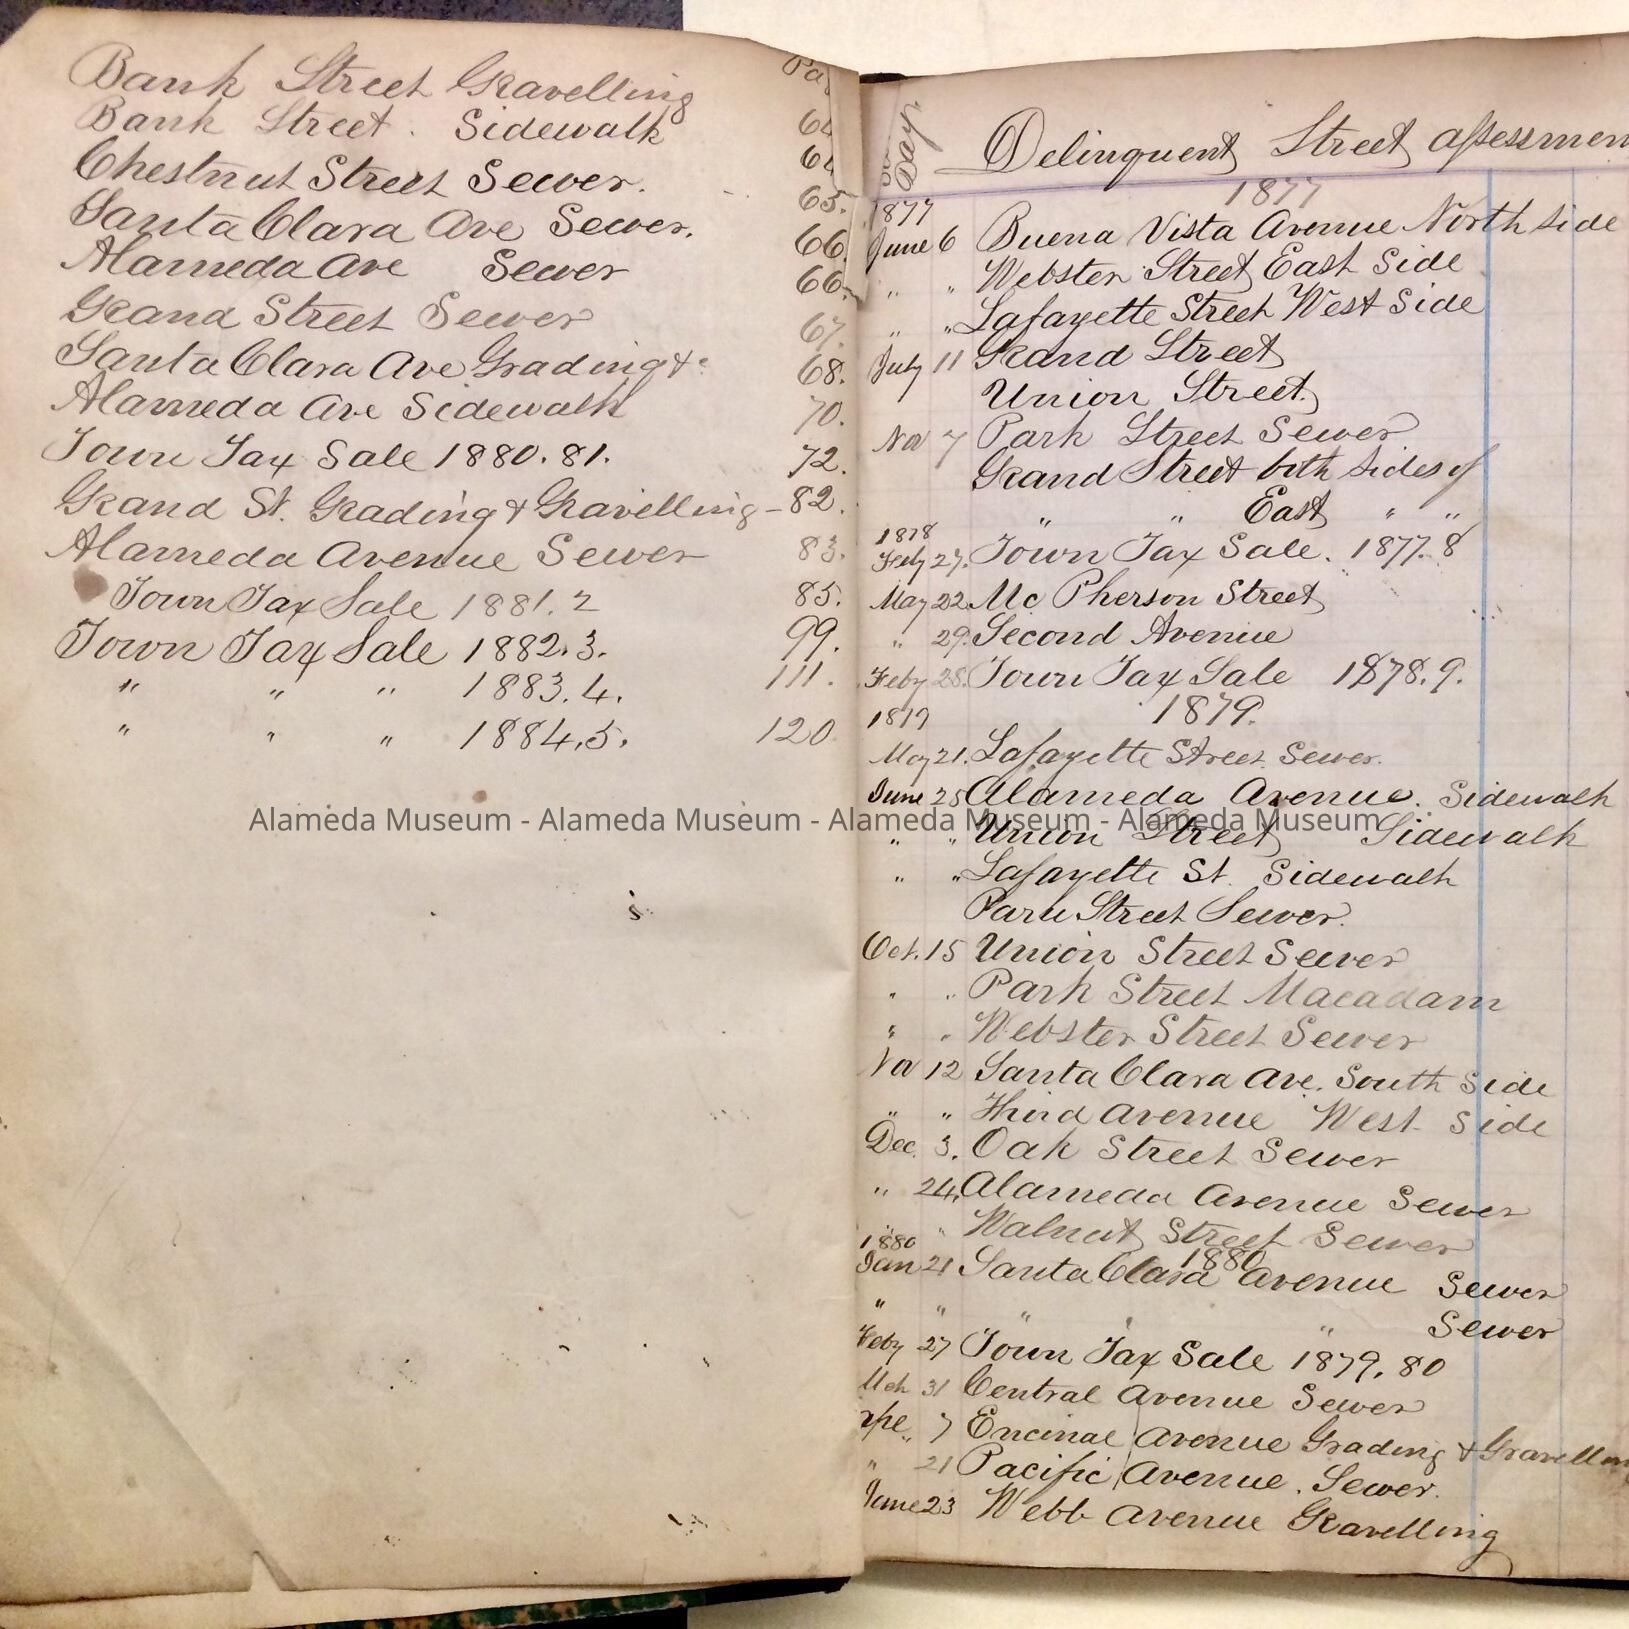 Bank Street Gravelling
Bank Street. Sidewalk
Chestnut Street Sewer. 65.
Santa Clara Ave Sewer. 66.
Alameda Ave Sewer 66.
Grand Street Sewer 67.
Santa Clara Ave Grading &c 68.
Alameda Ave Sidewalk 70.
Town Tax Sale 1880.81. 72.
Grand St. Grading & Gravelling - 82.
Alameda Avenue Sewer 83.
Town Tax Sale 1881.2 85.
Town Tax Sale 1882.3. 99.
" " " 1883.4. 111.
" " " 1884.5. 120
Day.
Delinquent Street assessmen
1877
1877
June 6 Buena Vista Avenue North Side
" " Webster Street East Side
" " Lafayette Street West Side
July 11 Grand Street
Union Street.
Nov 7 Park Street Sewer.
Grand Street both sides of
" " East " "
1878
Feby 27. Town Tax Sale. 1877.8
May 22. Mc Pherson Street
" 29. Second Avenue
Feby 28. Town Tax Sale 1878.9.
1879 1879.
May 21. Lafayette Street Sewer.
June 25 Alameda Avenue. Sidewalk
Alameda Museum - Alameda Museum - Alameda Museum - Alameda Museum
" " Union Street Sidewalk
" " Lafayette St. Sidewalk
Paru Street Sewer.
Oct. 15 Union Street Sewer
" " Park Street Macadam
" " Webster Street Sewer
Nov 12 Santa Clara Ave. South Side
" " Third Avenue West Side
Dec. 3. Oak Street Sewer
" 24. Alameda Avenue Sewer
" " Walnut Street Sewer
1880 1880
Jan 21 Santa Clara Avenue Sewer
" " " " " Sewer
Feby 27 Town Tax Sale 1879.80
Mch 31 Central Avenue Sewer
7 Encinal Avenue Grading & Gravelling
" 21 Pacific Avenue. Sewer.
June 23 Webb Avenue Gravelling